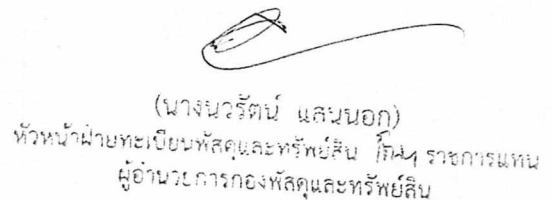 (นางนวรัตน์ แสนนอก)
หัวหน้าฝ่ายทะเบียนพัสดุและทรัพย์สิน ราชการแทน
ผู้อำนวยการกองพัสดุและทรัพย์สิน